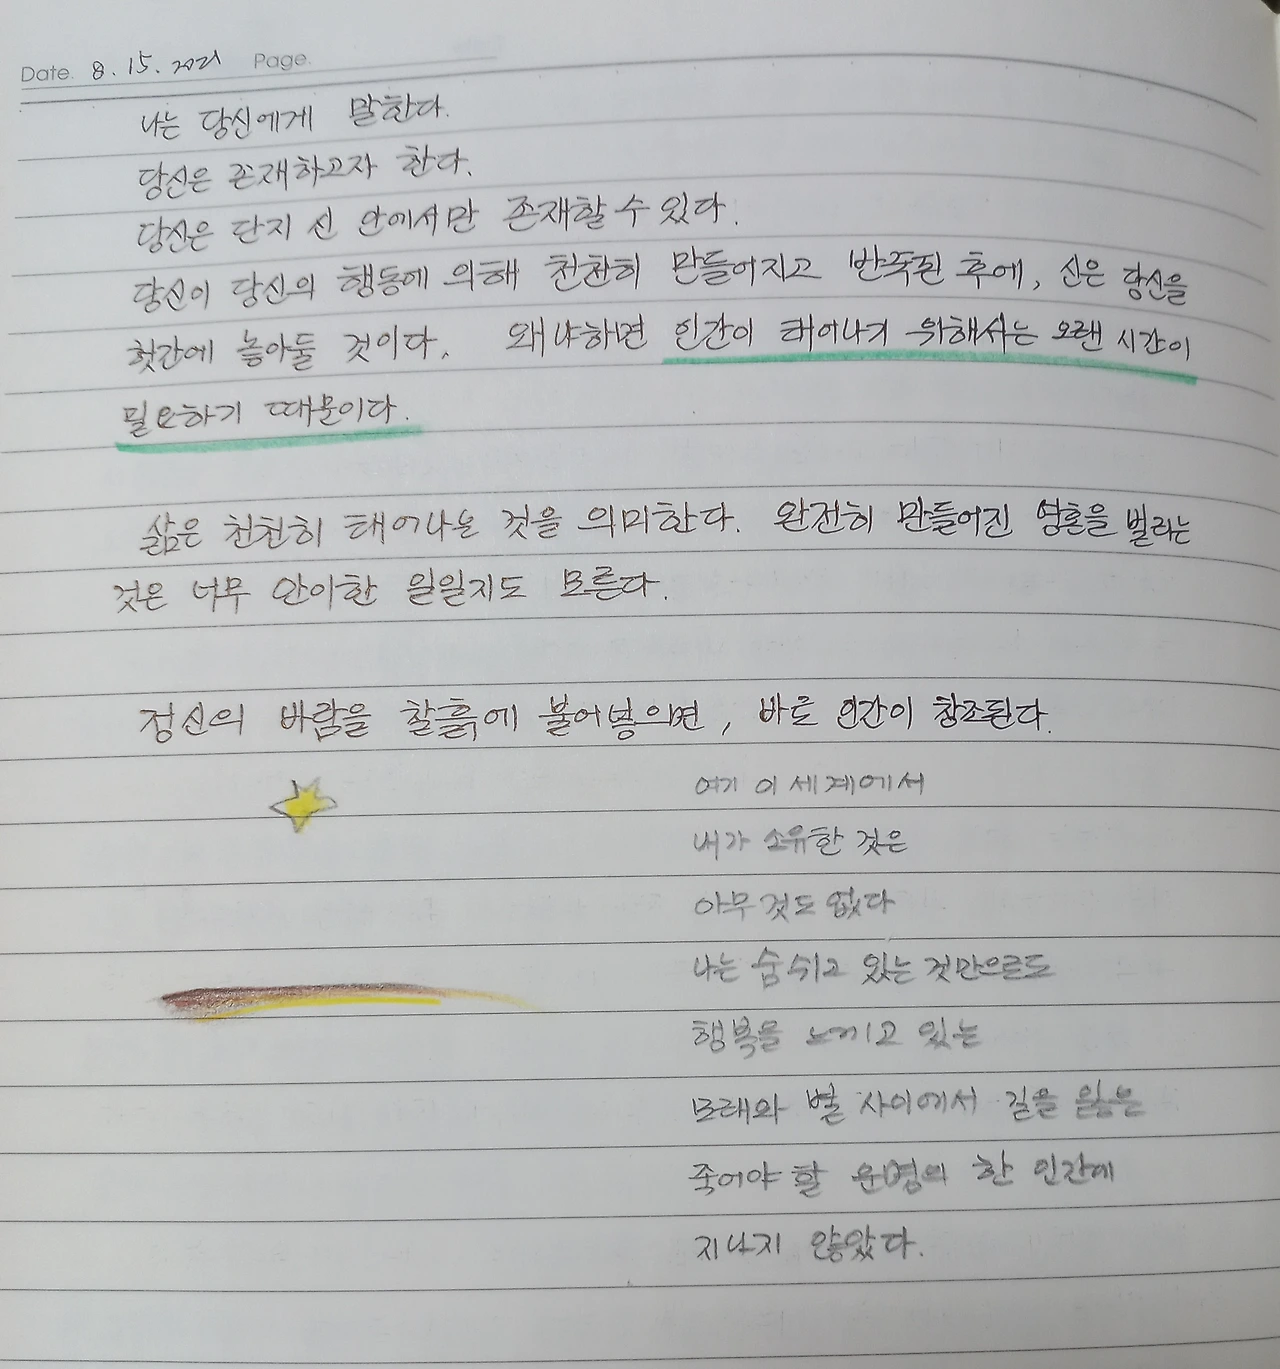 Date. 8. 15. 2021 Page.
나는 당신에게 말한다.
당신은 존재하고자 한다.
당신은 단지 신 안에서만 존재할 수 있다.
당신이 당신의 행동에 의해 천천히 만들어지고 반죽된 후에, 신은 당신을
헛간에 놓아둘 것이다. 왜냐하면 인간이 태어나기 위해서는 오랜 시간이
필요하기 때문이다.
삶은 천천히 태어나는 것을 의미한다. 완전히 만들어진 영혼을 빌리는
것은 너무 안이한 일일지도 모른다.
정신의 바람을 찰흙에 불어넣으면, 바로 인간이 창조된다.
여기 이 세계에서
내가 소유한 것은
아무것도 없다
나는 숨쉬고 있는 것만으로도
행복을 느끼고 있는
모래와 별 사이에서 길을 잃은
죽어야 할 운명의 한 인간에
지나지 않았다.